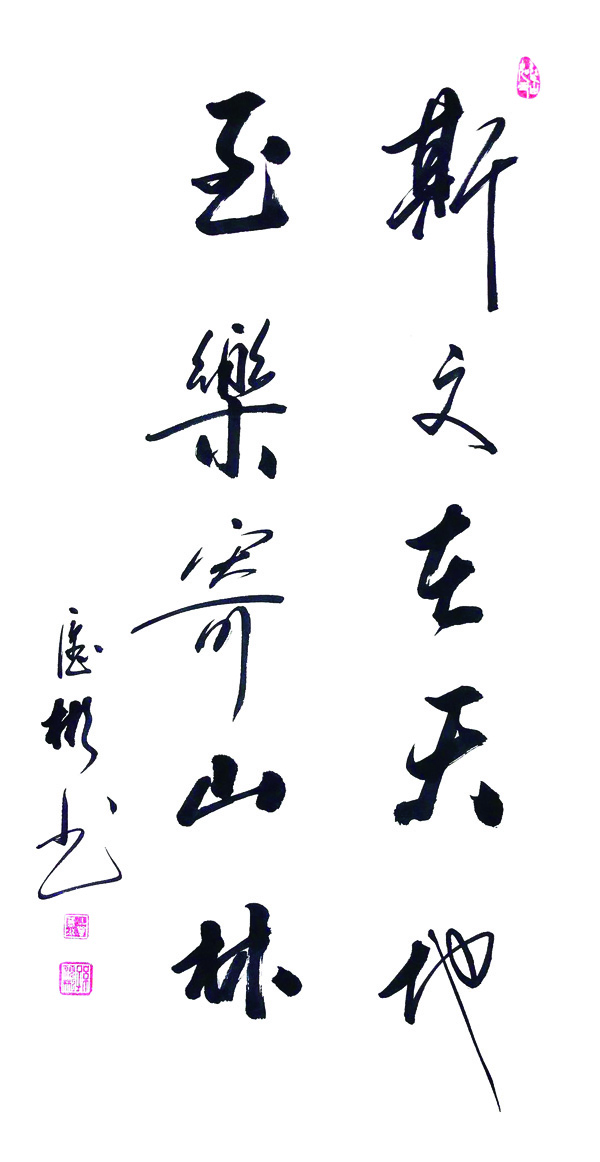 斯文在天地
至樂寄山林
德彬书